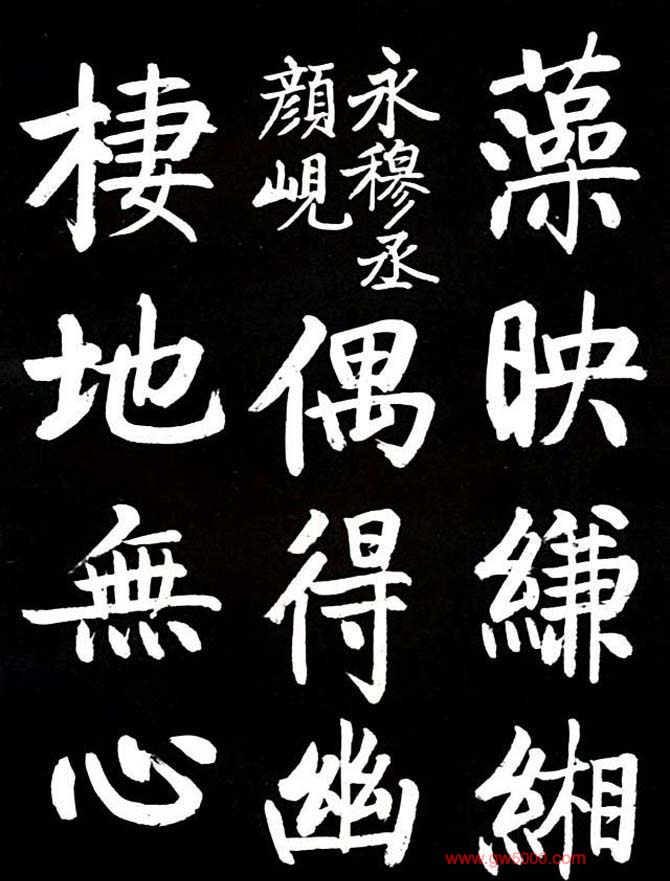 藻映縑緗
永穆丞
顔峴
偶得幽
棲地無心
www.gw5000.com